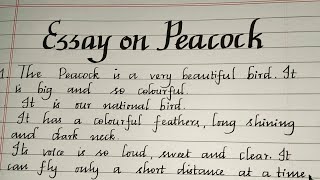 Essay on Peacock
1. The Peacock is a very beautiful bird. It
is big and so colourful.
It is our national bird.
It has a colourful feathers, long shining
and dark neck.
Its voice is so loud, sweet and clear. It
can fly only a short distance at a time.